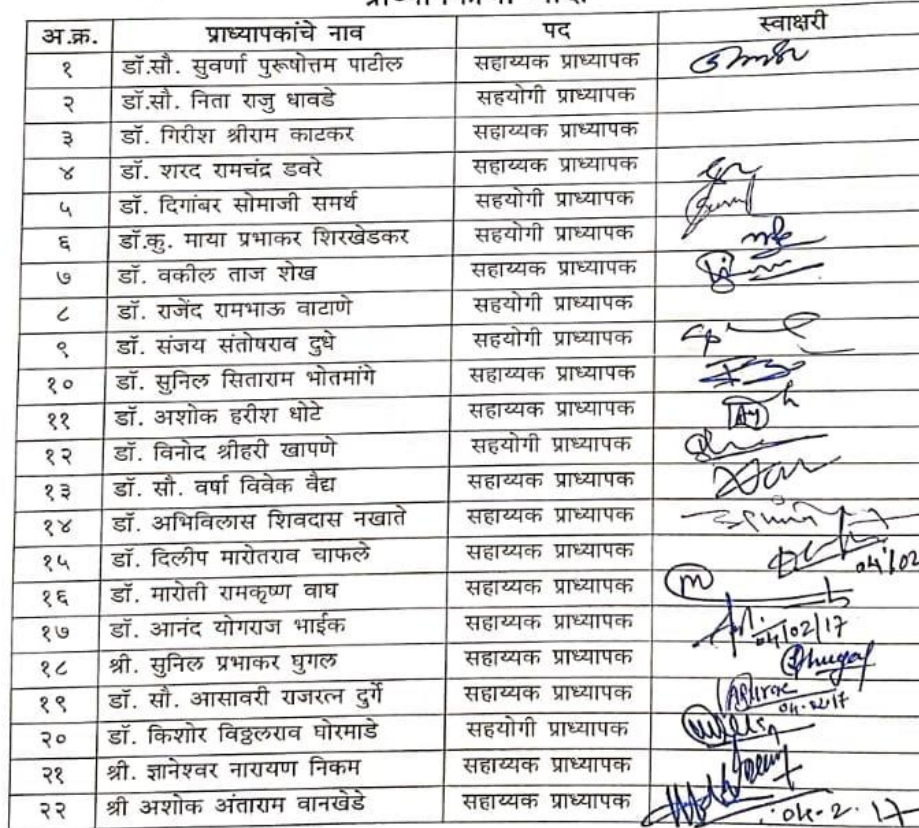 अ.क्र. प्राध्यापकांचे नाव पद स्वाक्षरी
१ डॉ.सौ. सुवर्णा पुरूषोत्तम पाटील सहाय्यक प्राध्यापक
२ डॉ.सौ. निता राजु धावडे सहयोगी प्राध्यापक
३ डॉ. गिरीश श्रीराम काटकर सहाय्यक प्राध्यापक
४ डॉ. शरद रामचंद्र डवरे सहाय्यक प्राध्यापक
५ डॉ. दिगांबर सोमाजी समर्थ सहयोगी प्राध्यापक
६ डॉ.कु. माया प्रभाकर शिरखेडकर सहयोगी प्राध्यापक
७ डॉ. वकील ताज शेख सहाय्यक प्राध्यापक
८ डॉ. राजेंद रामभाऊ वाटाणे सहयोगी प्राध्यापक
९ डॉ. संजय संतोषराव दुधे सहयोगी प्राध्यापक
१० डॉ. सुनिल सिताराम भोतमांगे सहाय्यक प्राध्यापक
११ डॉ. अशोक हरीश धोटे सहाय्यक प्राध्यापक
१२ डॉ. विनोद श्रीहरी खापणे सहयोगी प्राध्यापक
१३ डॉ. सौ. वर्षा विवेक वैद्य सहाय्यक प्राध्यापक
१४ डॉ. अभिविलास शिवदास नखाते सहाय्यक प्राध्यापक
१५ डॉ. दिलीप मारोतराव चाफले सहाय्यक प्राध्यापक 04/02
१६ डॉ. मारोती रामकृष्ण वाघ सहाय्यक प्राध्यापक
१७ डॉ. आनंद योगराज भाईक सहाय्यक प्राध्यापक 04/02/17
१८ श्री. सुनिल प्रभाकर घुगल सहाय्यक प्राध्यापक
१९ डॉ. सौ. आसावरी राजरत्न दुर्गे सहाय्यक प्राध्यापक
२० डॉ. किशोर विठ्ठलराव घोरमाडे सहयोगी प्राध्यापक
२१ श्री. ज्ञानेश्वर नारायण निकम सहाय्यक प्राध्यापक
२२ श्री अशोक अंताराम वानखेडे सहाय्यक प्राध्यापक 04-2-17